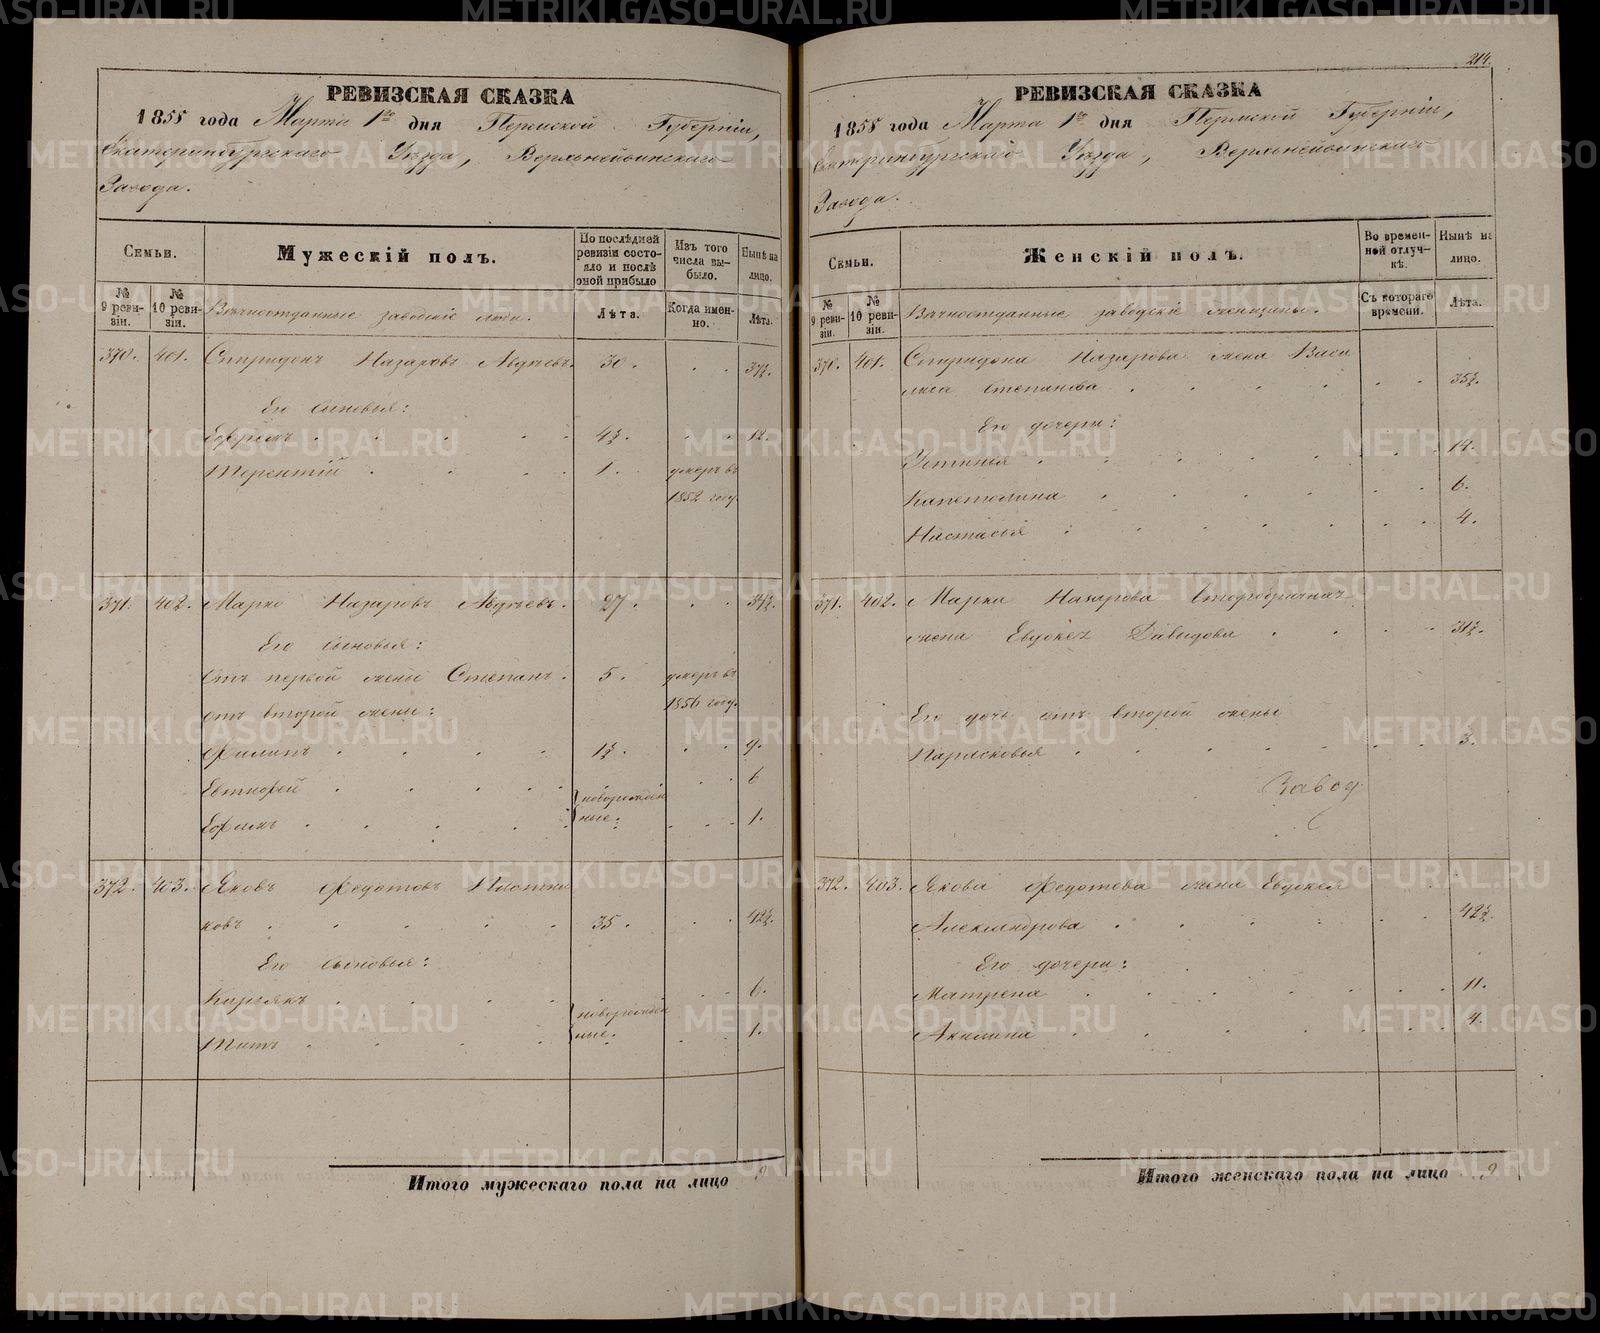 214.
РЕВИЗСКАЯ СКАЗКА
1858 года Марта 1го дня Пермской Губерніи,
Екатеринбургскаго Уѣзда, Верхнейвинскаго
Завода.
Семьи.
Мужескій полъ.
По послѣдней ревизіи состояло и послѣ оной прибыло
Изъ того числа выбыло.
Нынѣ на лицо.
№ 9 ревизіи.
№ 10 ревизіи.
Вѣчноотданные заводскіе люди.
Лѣта.
Когда именно.
Лѣта.
370. 401. Спиридонъ Назаровъ Авдѣевъ. 30. 37½.
Его сыновья:
Ефремъ 4½. 12.
Терентій 1. умеръ въ
1852 году.
371. 402. Марко Назаровъ Авдѣевъ. 27. 34½.
Его сыновья:
отъ первой жены Степанъ. 5. умеръ въ
1856 году.
отъ второй жены:
Филипъ 1½. 9.
Евтифей 6
новорожден
ные.
Ефимъ 1.
372. 403. Яковъ Федотовъ Плотни
ковъ 35. 42½.
Его сыновья:
Кирьякъ 6.
новорожден
ные.
Титъ 1.
Итого мужескаго пола на лицо 9
РЕВИЗСКАЯ СКАЗКА
1858 года Марта 1го дня Пермской Губерніи,
Екатеринбургскаго Уѣзда, Верхнейвинскаго
Завода.
Семьи.
Женскій полъ.
Во временной отлучкѣ.
Нынѣ на лицо.
№ 9 ревизіи.
№ 10 ревизіи.
Вѣчноотданные заводскіе женщины.
Съ котораго времени.
Лѣта.
370. 401. Спиридона Назарова жена Васи
лиса Степанова 35½.
Его дочери:
Устинья 14.
Капетолина 6.
Настасья 4.
371. 402. Марка Назарова второбрачная
жена Евдокея Давыдова 31½.
Его дочь отъ второй жены
Парасковья 3.
Завод
372. 403. Якова Федотова жена Евдокея
Александрова 42½.
Его дочери:
Матрена 11.
Акилина 4.
Итого женскаго пола на лицо 9
METRIKI.GASO-URAL.RU